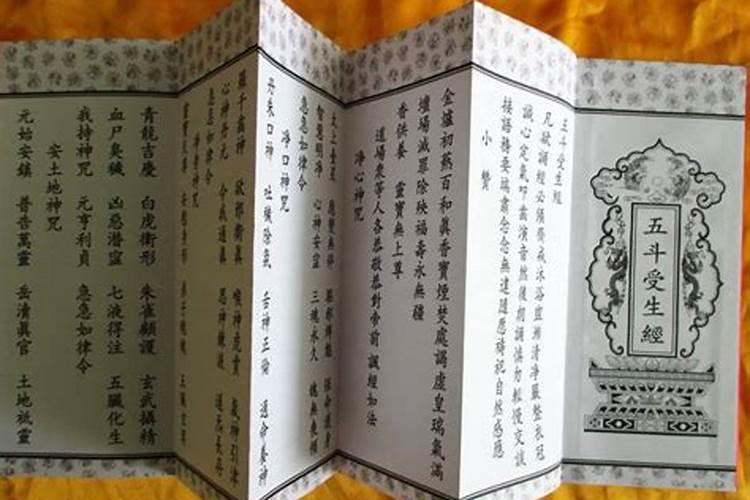 五斗受生經
五斗受生經
凡欲誦經必須齋戒沐浴盥漱清淨嚴整衣冠
誠心定氣叩齒演音然後朗誦慎勿輕慢交談
接語務要端肅念念無違隨愿禱祀自然感應
小贊
金爐初爇百和真香寶煙焚處謁虛皇瑞氣滿
壇場滅罪除殃福壽永無疆
香供養 靈寶無上尊
道場眾等人各恭敬恭對帝前 誦經如法
淨心神咒
太上臺星 應變無停 驅邪縛魅 保命護身
智慧明淨 心神安寧 三魂永久 魄無喪傾
急急如律令
淨口神咒
丹朱口神 吐穢除氛 舌神正倫 通命養神
羅千齒神 卻邪衛真 喉神虎賁 氣神引津
心神丹元 令我通真 思神鍊液 道炁長存
急急如律令
淨身神咒
青龍吉慶 白虎衛形 朱雀顧護 玄武攝精
血尸臭穢 凶惡潛寧 七液得注 五臟化生
我持神咒 元亨利貞 急急如律令
安土地神咒
元始安鎮 普告萬靈 岳瀆真官 土地祗靈